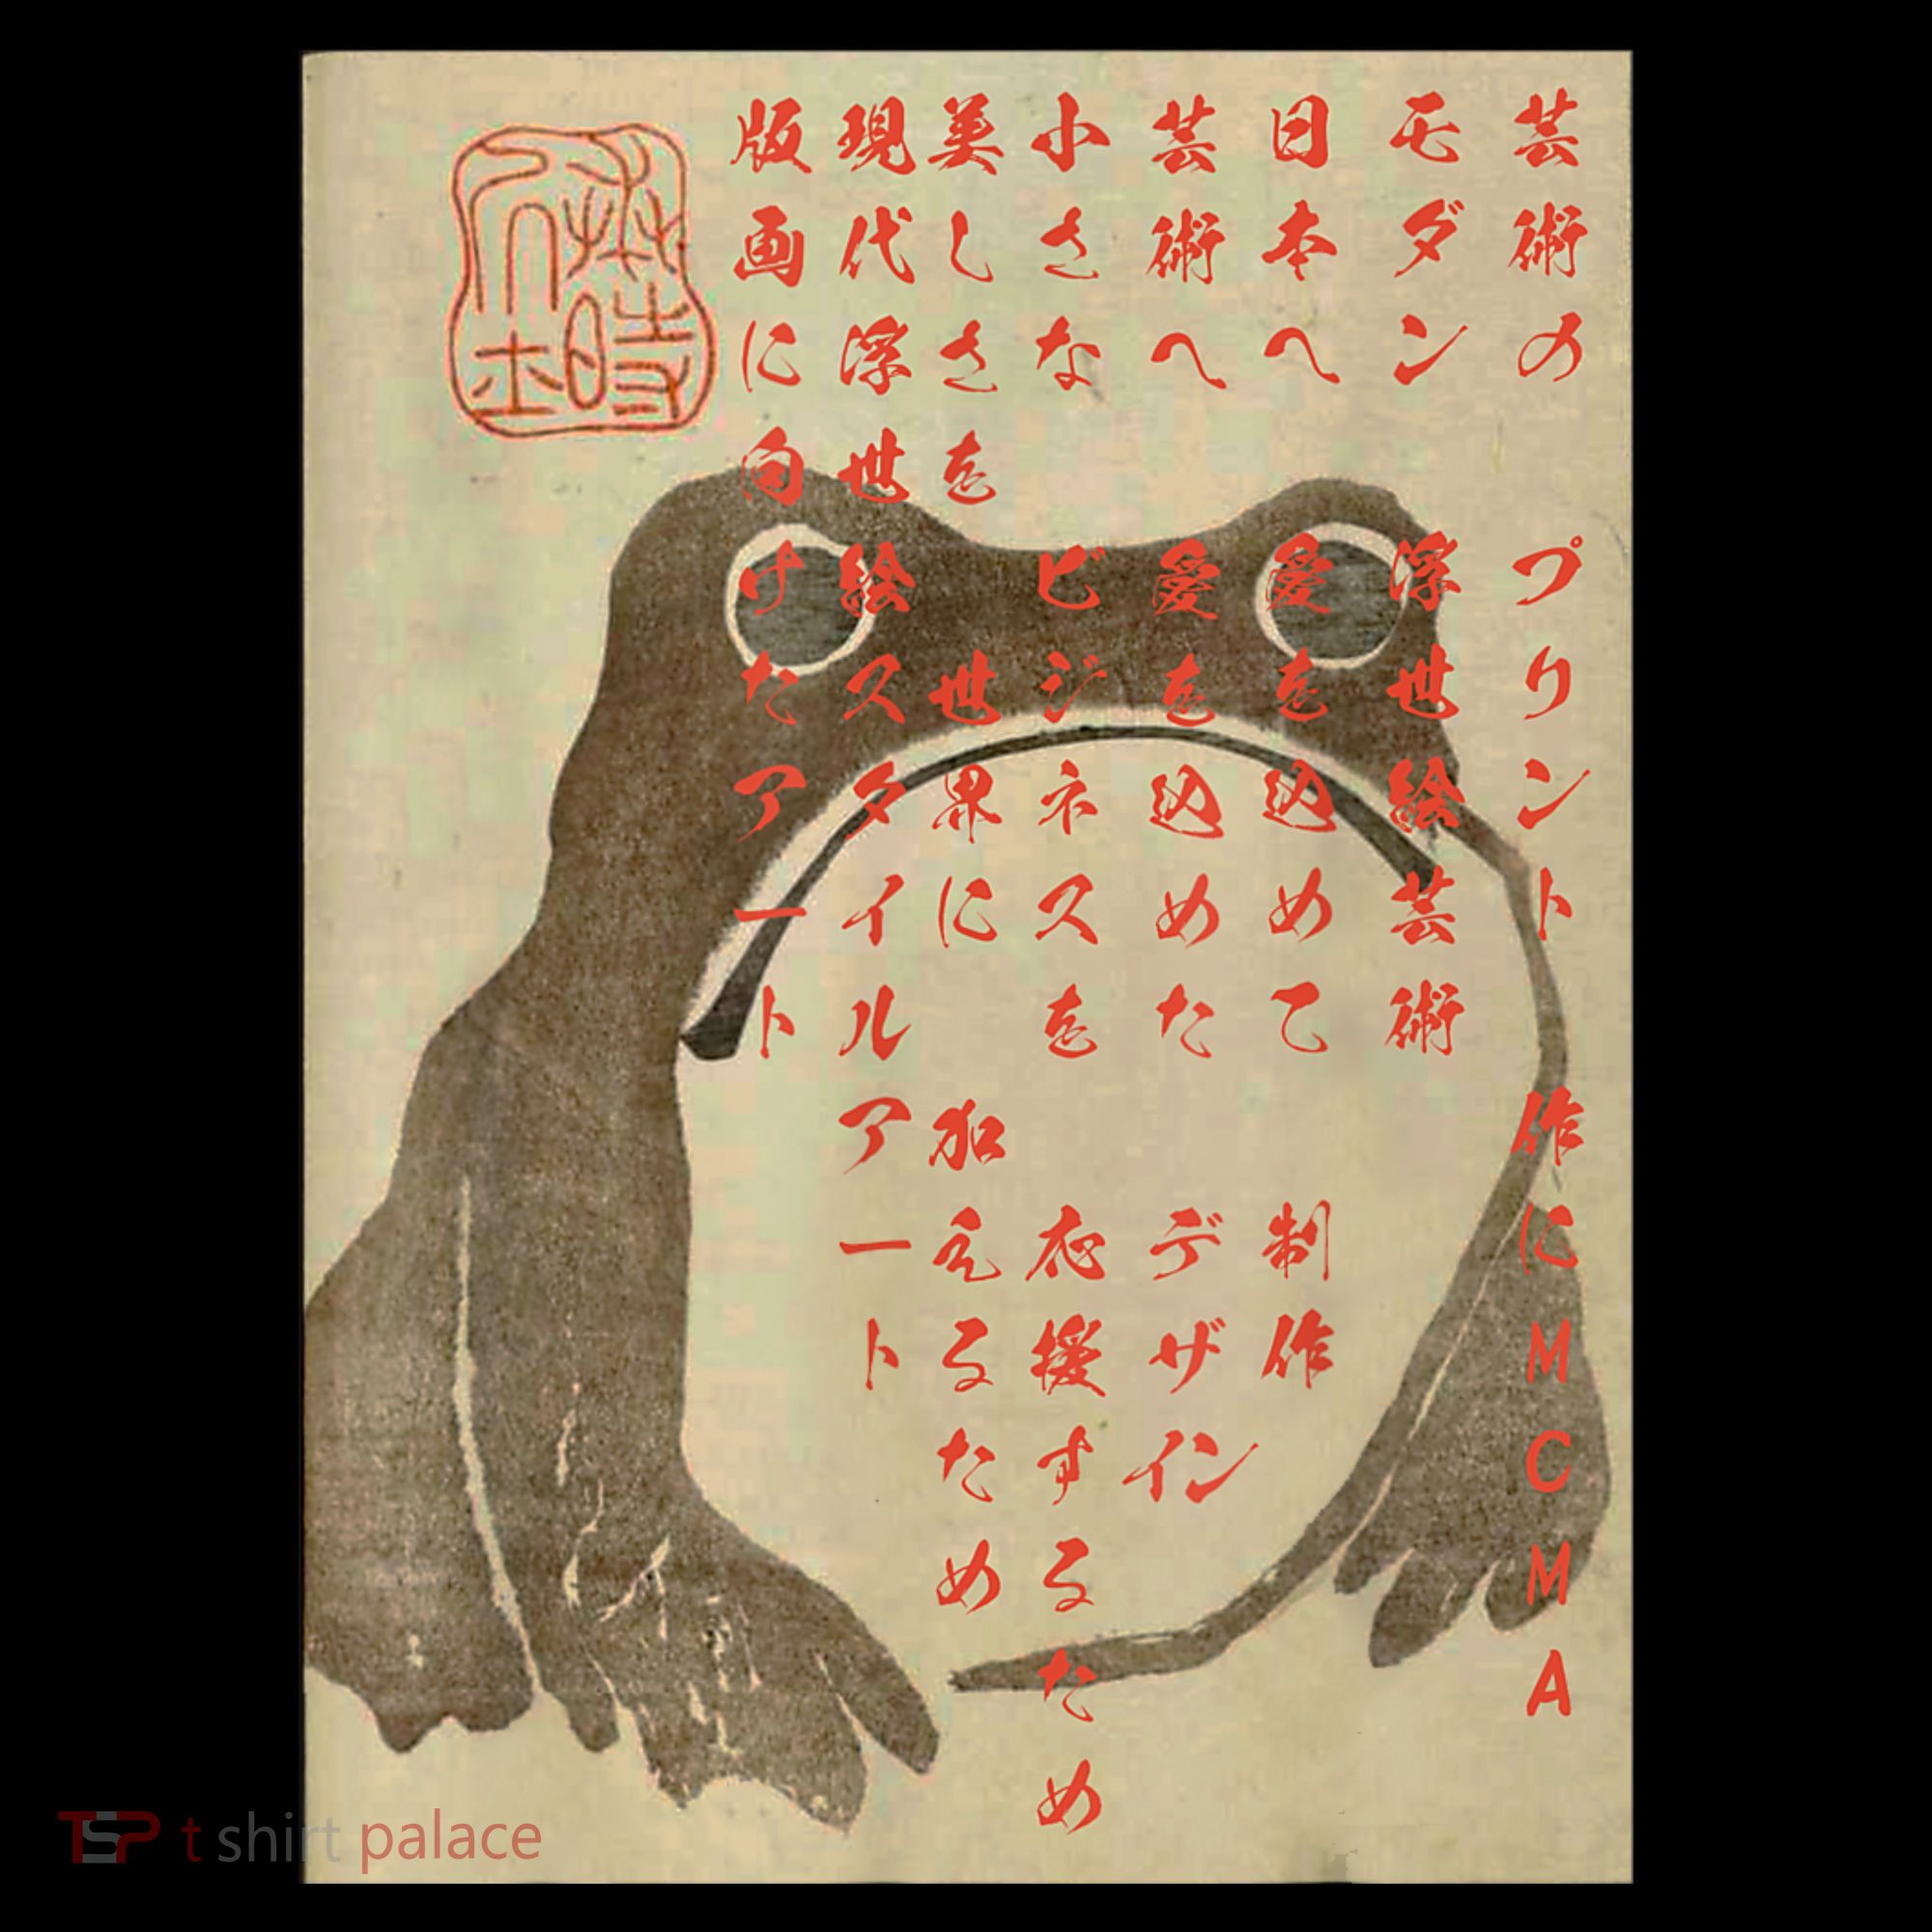 芸術の プリント 作にMCMA
モダン 浮世絵芸術
日本へ 愛を込めて 制作
芸術へ 愛を込めた デザイン
小さな ビジネスを 応援するため
美しさを 世界に 加えるため
現代浮世絵スタイルアート
版画に向けたアート
TSP t shirt palace